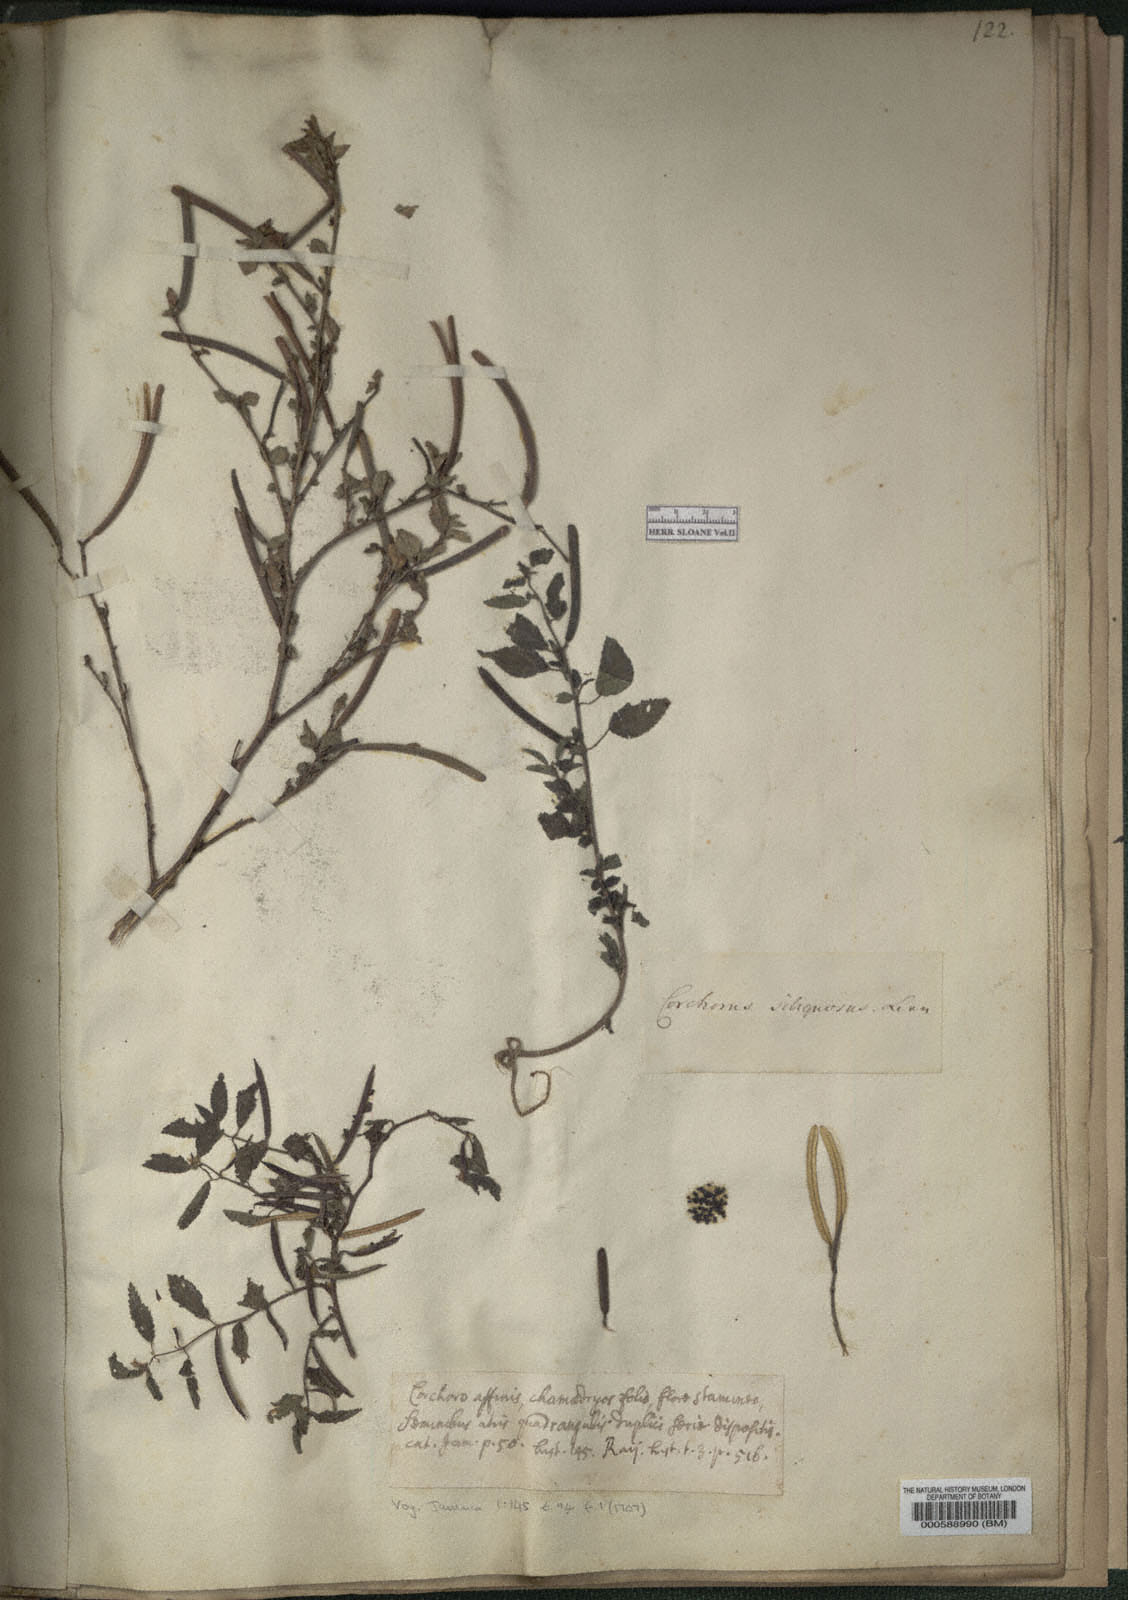 122.
HERB. SLOANE Vol.II
Corchorus siliquosus. Linn
Corchoro affinis, chamædryos folio, flore stamineo,
seminibus atris quadrangulis duplici serie dispositis.
cat. Jam. p. 50. hist. 145. Raij. hist. t. 3. p. 516.
Voy. Jamaica 1:145 t. 94 f. 1 (1707)
THE NATURAL HISTORY MUSEUM, LONDON
DEPARTMENT OF BOTANY
000588990 (BM)